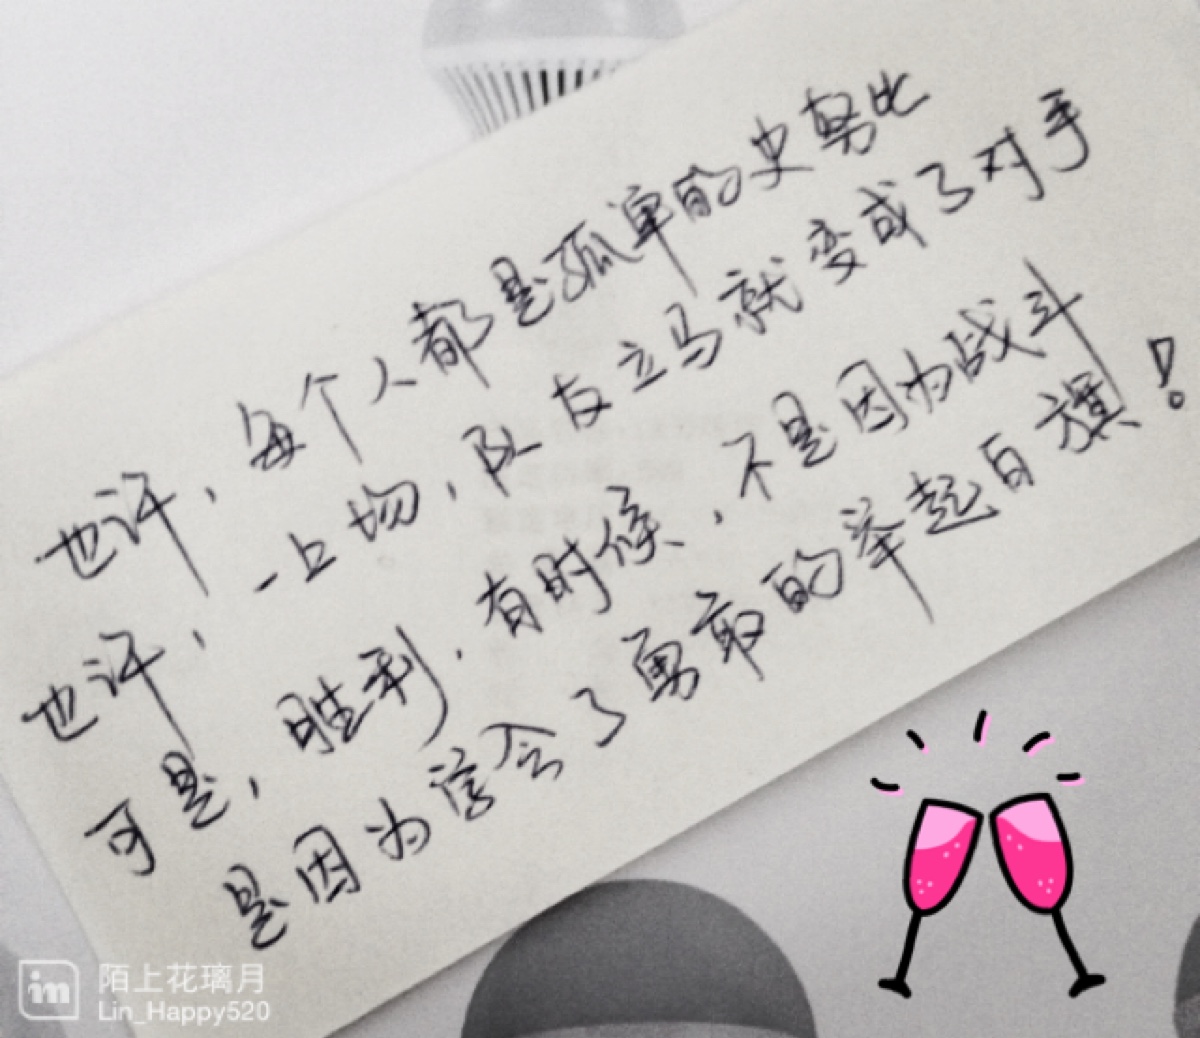 也许，每个人都是孤单的史努比
也许，一上场，队友立马就变成了对手
可是，胜利，有时候，不是因为战斗
是因为学会了勇敢的举起白旗！
im
陌上花璃月
Lin_Happy520